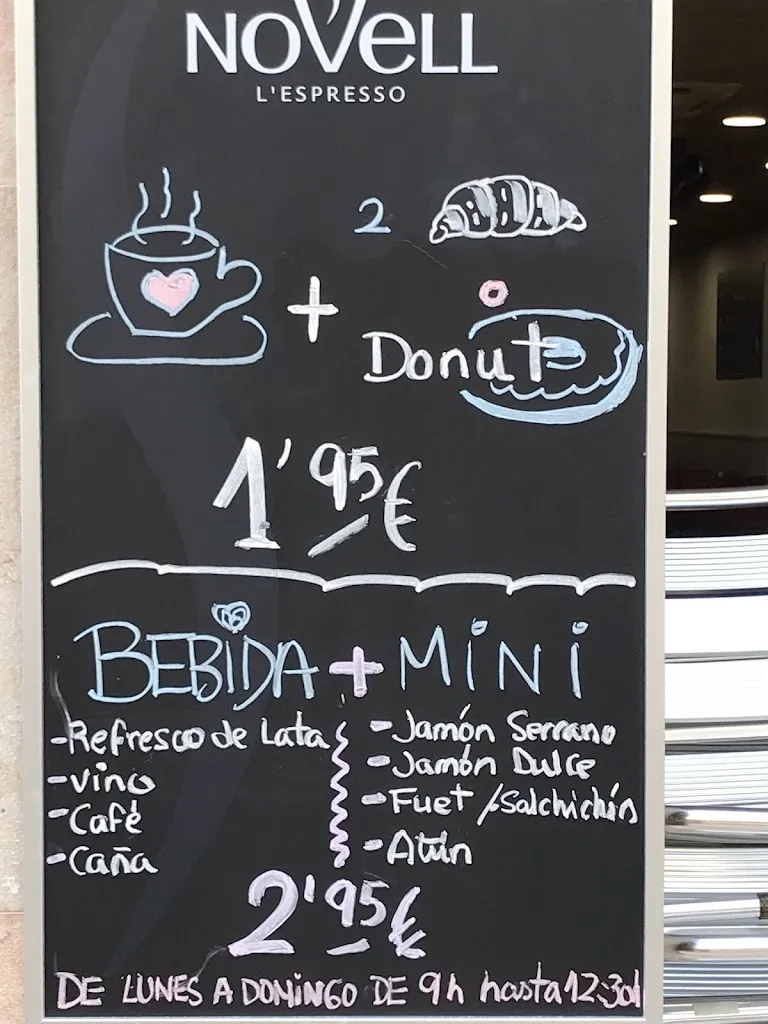 NOVELL
L'ESPRESSO
2
+
o
Donut
1'95€
BEBIDA + MINI
-Refresco de Lata
-vino
-Café
-Caña
-Jamón Serrano
-Jamón Dulce
-Fuet /Salchichón
-Atún
2'95€
DE LUNES A DOMINGO DE 9h hasta 12:30h